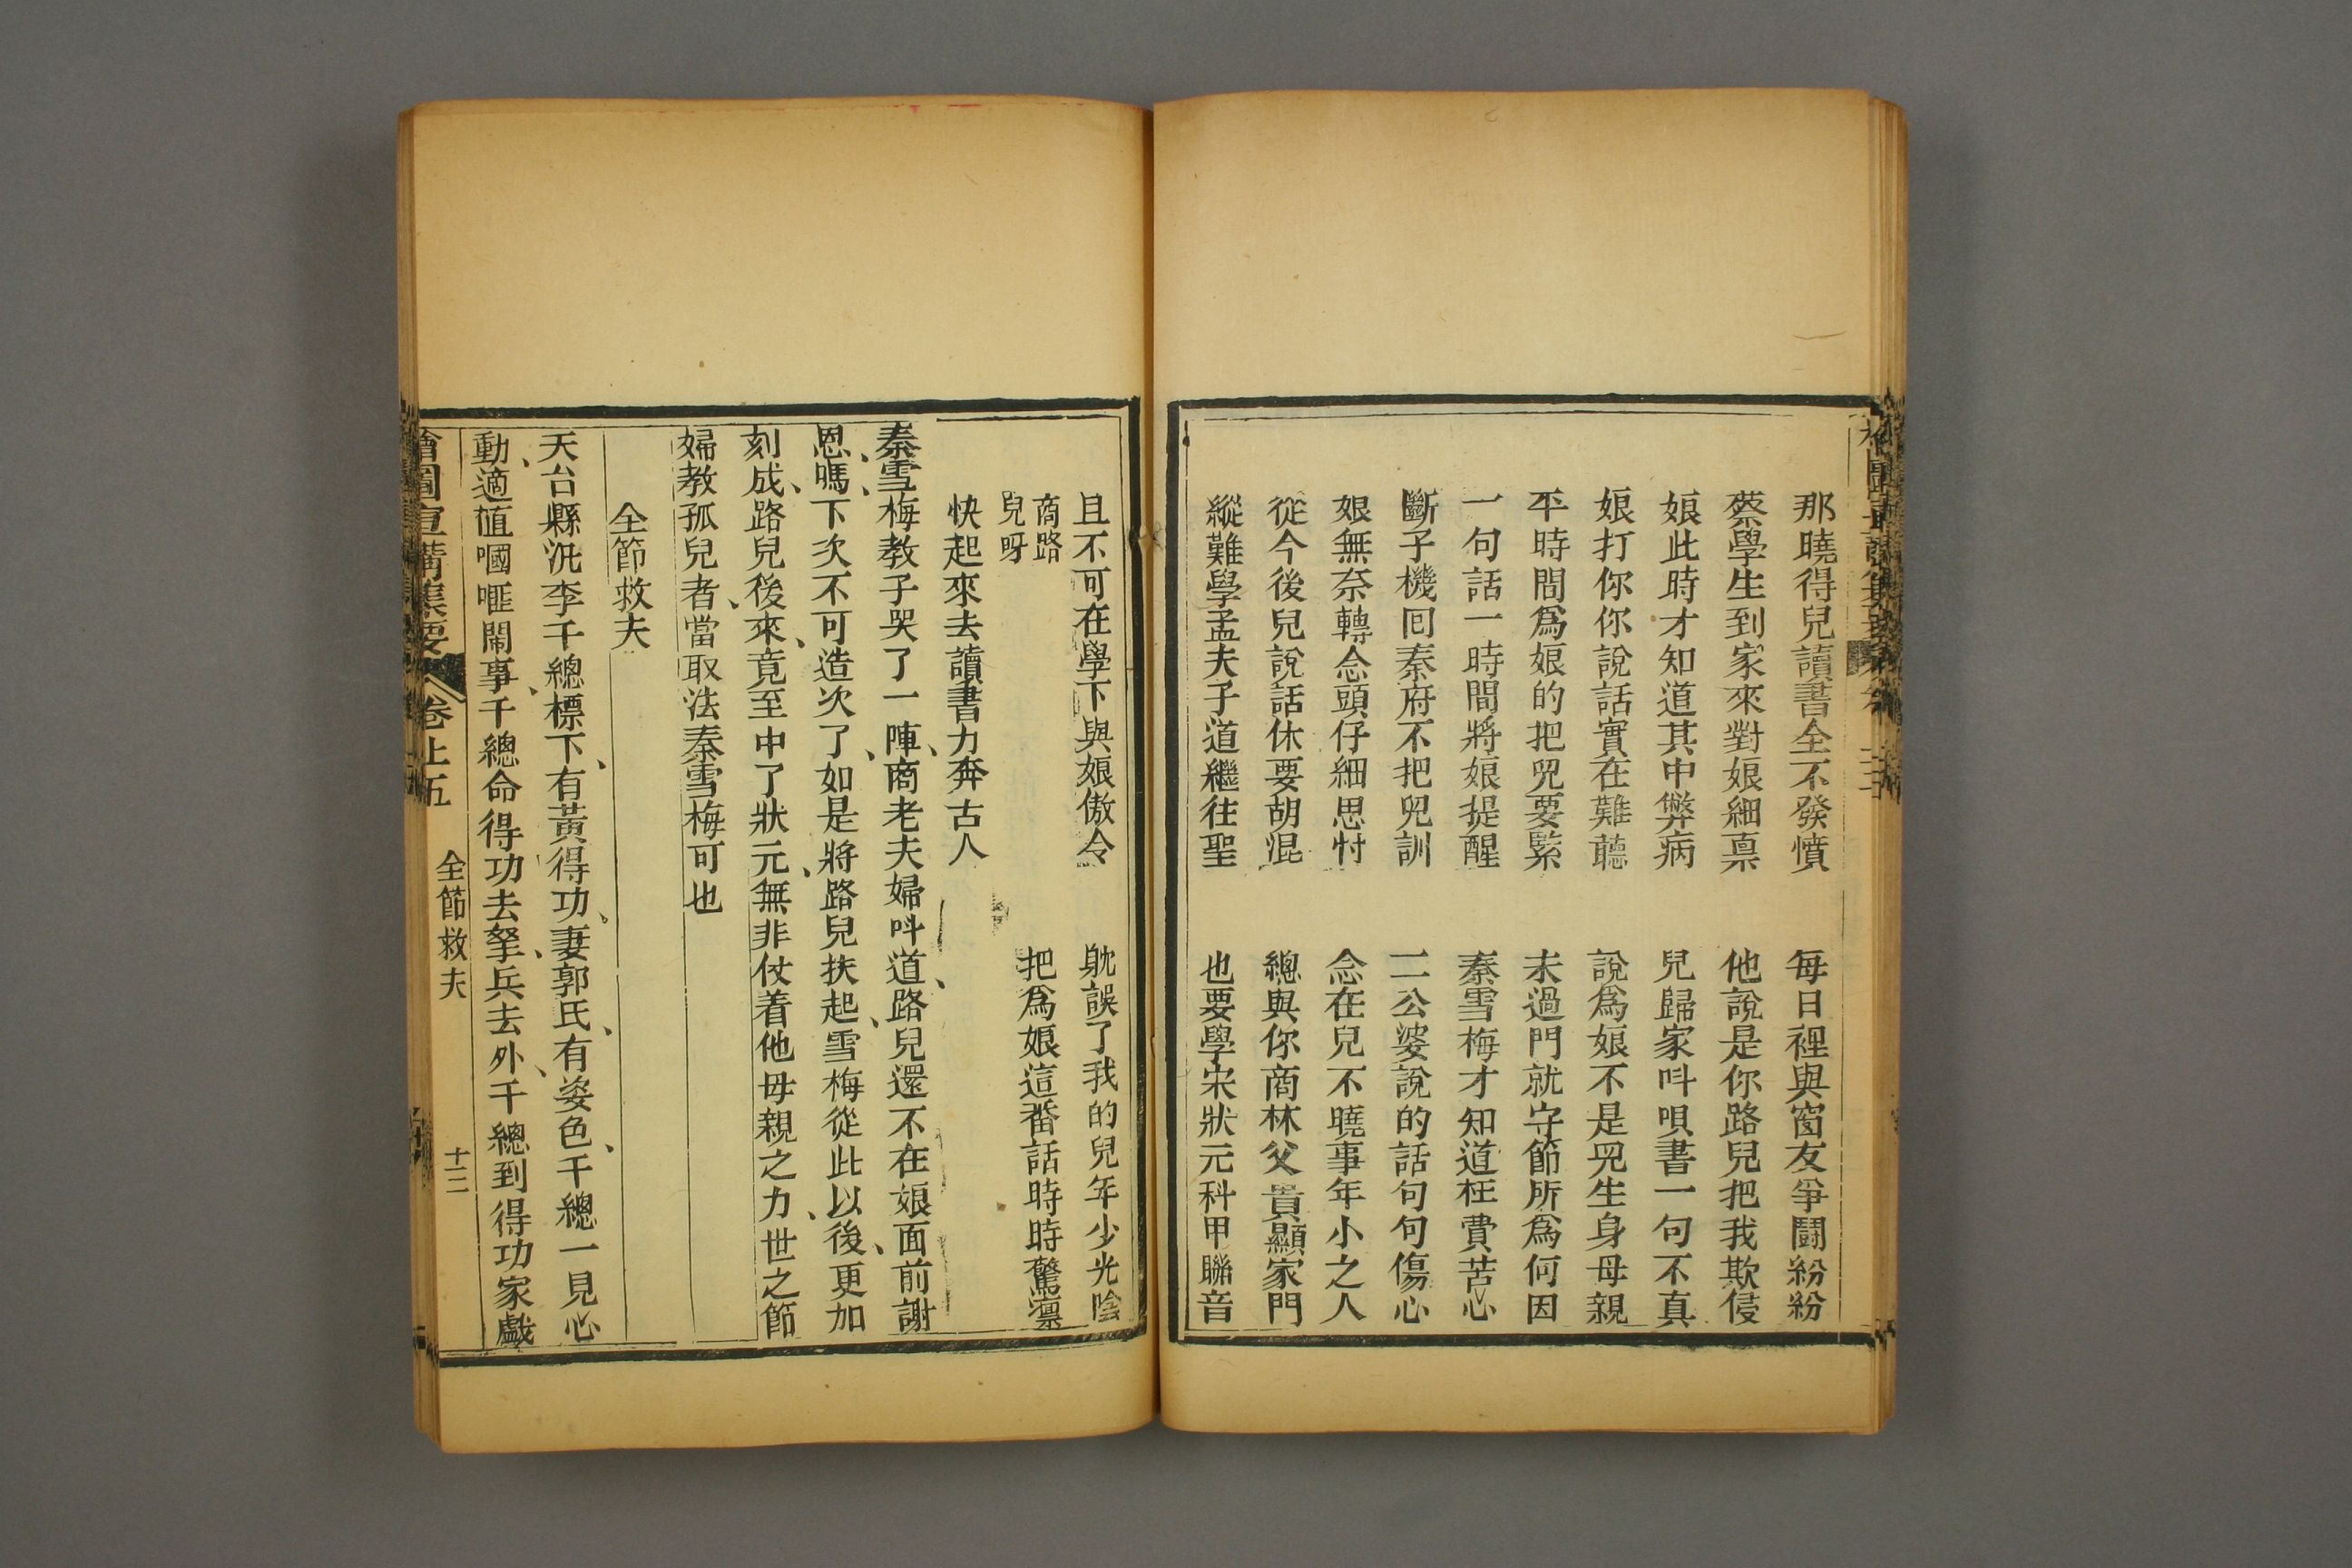 那曉得兒讀書全不發憤　每日裡與窗友爭鬪紛紛
蔡學生到家來對娘細禀　他說是你路兒把我欺侵
娘此時才知道其中弊病　兒歸家呌唄書一句不真
娘打你你說話實在難聽　說為娘不是兒生身母親
平時間為娘的把兒要緊　未過門就守節所為何因
一句話一時間將娘提醒　秦雪梅才知道枉費苦心
斷子機囘秦府不把兒訓　二公婆說的話句句傷心
娘無奈轉念頭仔細思忖　念在兒不曉事年小之人
從今後兒說話休要胡混　總與你商林父貴顯家門
縱難學孟夫子道繼往聖　也要學宋狀元科甲聯音
且不可在學下與娘傲令　躭誤了我的兒年少光陰
商路兒呀　把為娘這番話時時驚凜
快起來去讀書力奔古人
秦雪梅教子哭了一陣、商老夫婦呌道、路兒還不在娘面前謝
恩、嗎、下次不可造次了、如是將路兒扶起、雪梅從此以後、更加
刻成、路兒後來、竟至中了狀元、無非仗着他母親之力、世之節
婦教孤兒者、當取法秦雪梅可也
全節救夫
天台縣汛李千總標下、有黃得功、妻郭氏、有姿色、千總一見心
動、適值嘓嘊鬧事、千總命得功去拏、兵去外、千總到得功家戲
繪圖宣講集要　卷上五　全節救夫　十二